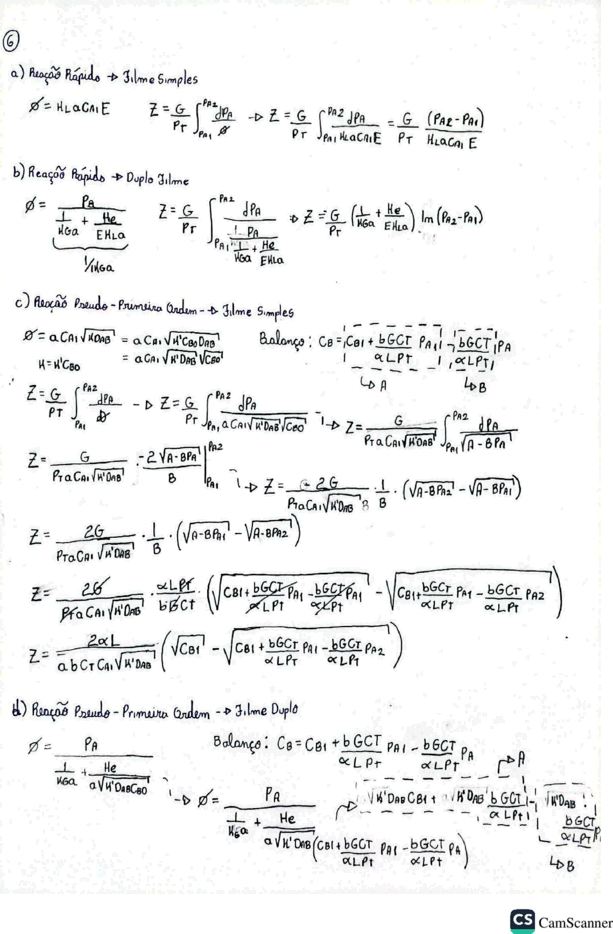 6
a) Reação Rápido → Filme Simples
Ø = KLaCA1E   Z = G/PT ∫PA1^PA2 dPA/Ø → Z = G/PT ∫PA1^PA2 dPA/(HLaCA1E) = G/PT (PA2 - PA1)/(HLaCA1E)
b) Reação Rápido → Duplo Filme
Ø = PA/(1/KGa + He/EHLa)   Z = G/PT ∫PA1^PA2 dPA/(PA/(1/KGa + He/EHLa)) → Z = G/PT (1/KGa + He/EHLa) . lm (PA2 - PA1)
1/KGa
c) Reação Pseudo-Primeira Ordem → Filme Simples
Ø = aCA1√KDAB = aCA1√K'CB0DAB   Balanço: CB = CB1 + bGCT/αLPT PA1 - bGCT/αLPT PA
K = K'CB0   = aCA1√K'DAB √CB0   ↳ A   ↳ B
Z = G/PT ∫PA1^PA2 dPA/Ø → Z = G/PT ∫PA1^PA2 dPA/(aCA1√K'DAB √CB0) → Z = G/(PTaCA1√K'DAB) ∫PA1^PA2 dPA/√A-BPA
Z = G/(PTaCA1√K'DAB) . -2√A-BPA/B |PA1^PA2 → Z = -2G/(PTaCA1√K'DAB) . 1/B . (√A-BPA2 - √A-BPA1)
Z = 2G/(PTaCA1√K'DAB) . 1/B . (√A-BPA1 - √A-BPA2)
Z = 2G/(PTaCA1√K'DAB) . αLPT/bGCT . (√CB1 + bGCT/αLPT PA1 - bGCT/αLPT PA1 - √CB1 + bGCT/αLPT PA1 - bGCT/αLPT PA2)
Z = 2αL/(abCTCA1√K'DAB) (√CB1 - √CB1 + bGCT/αLPT PA1 - bGCT/αLPT PA2)
d) Reação Pseudo-Primeira Ordem → Filme Duplo
Ø = PA/(1/KGa + He/(a√K'DABCB0))   Balanço: CB = CB1 + bGCT/αLPT PA1 - bGCT/αLPT PA
→ A
→ Ø = PA/(1/KGa + He/(a√K'DAB(CB1 + bGCT/αLPT PA1 - bGCT/αLPT PA)))   √K'DABCB1 + √K'DAB bGCT/αLPT - √K'DAB . bGCT/αLPT P
↳ B
CS CamScanner